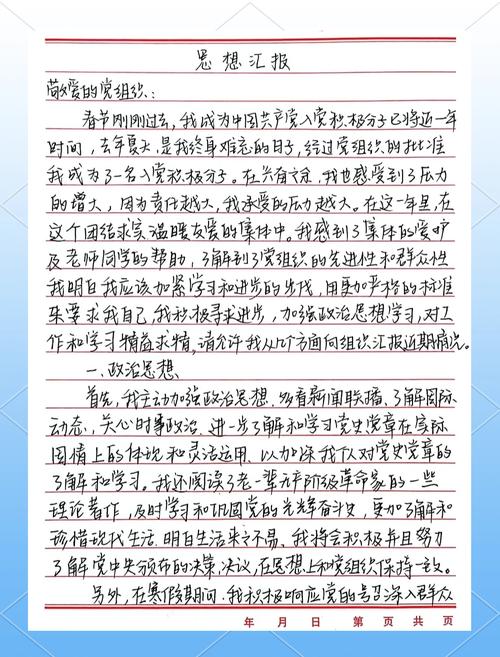 思想汇报
敬爱的党组织：
春节刚刚过去，我成为中国共产党入党积极分子已将近一年
时间，去年夏天，是我终身难忘的日子，经过党组织的批准
我成为了一名入党积极分子。在兴奋之余，我也感受到了压力
的增大，因为责任越大，我承受的压力越大。在这一年里，在
这个团结求实温暖友爱的集体中。我感到了集体的爱护
及老师同学的帮助，了解到了党组织的先进性和群众性
我明白我应该加紧学习和进步的步伐，用更加严格的标准
来要求我自己，我积极寻求进步，加强政治思想学习，对工
作和学习精益求精，请允许我从几个方面向组织汇报近期情况。
一、政治思想
首先，我主动加强政治思想，多看新闻联播、了解国际
动态、关心时事政治、进一步了解和学习党史党章在实际
国情上的体现和灵活运用，以加深我个人对党史党章的
了解和学习。我还阅读了老一辈无产阶级革命家的一些
理论著作，及时学习和巩固党的光辉奋斗史，更加了解和
珍惜现代生活，明白生活来之不易、我将会积极并且努力
了解党中央颁布的决策、决议，在思想上和党组织保持一致。
另外，在寒假期间，我积极响应党的号召深入群众
年 月 日 第 页 共 页